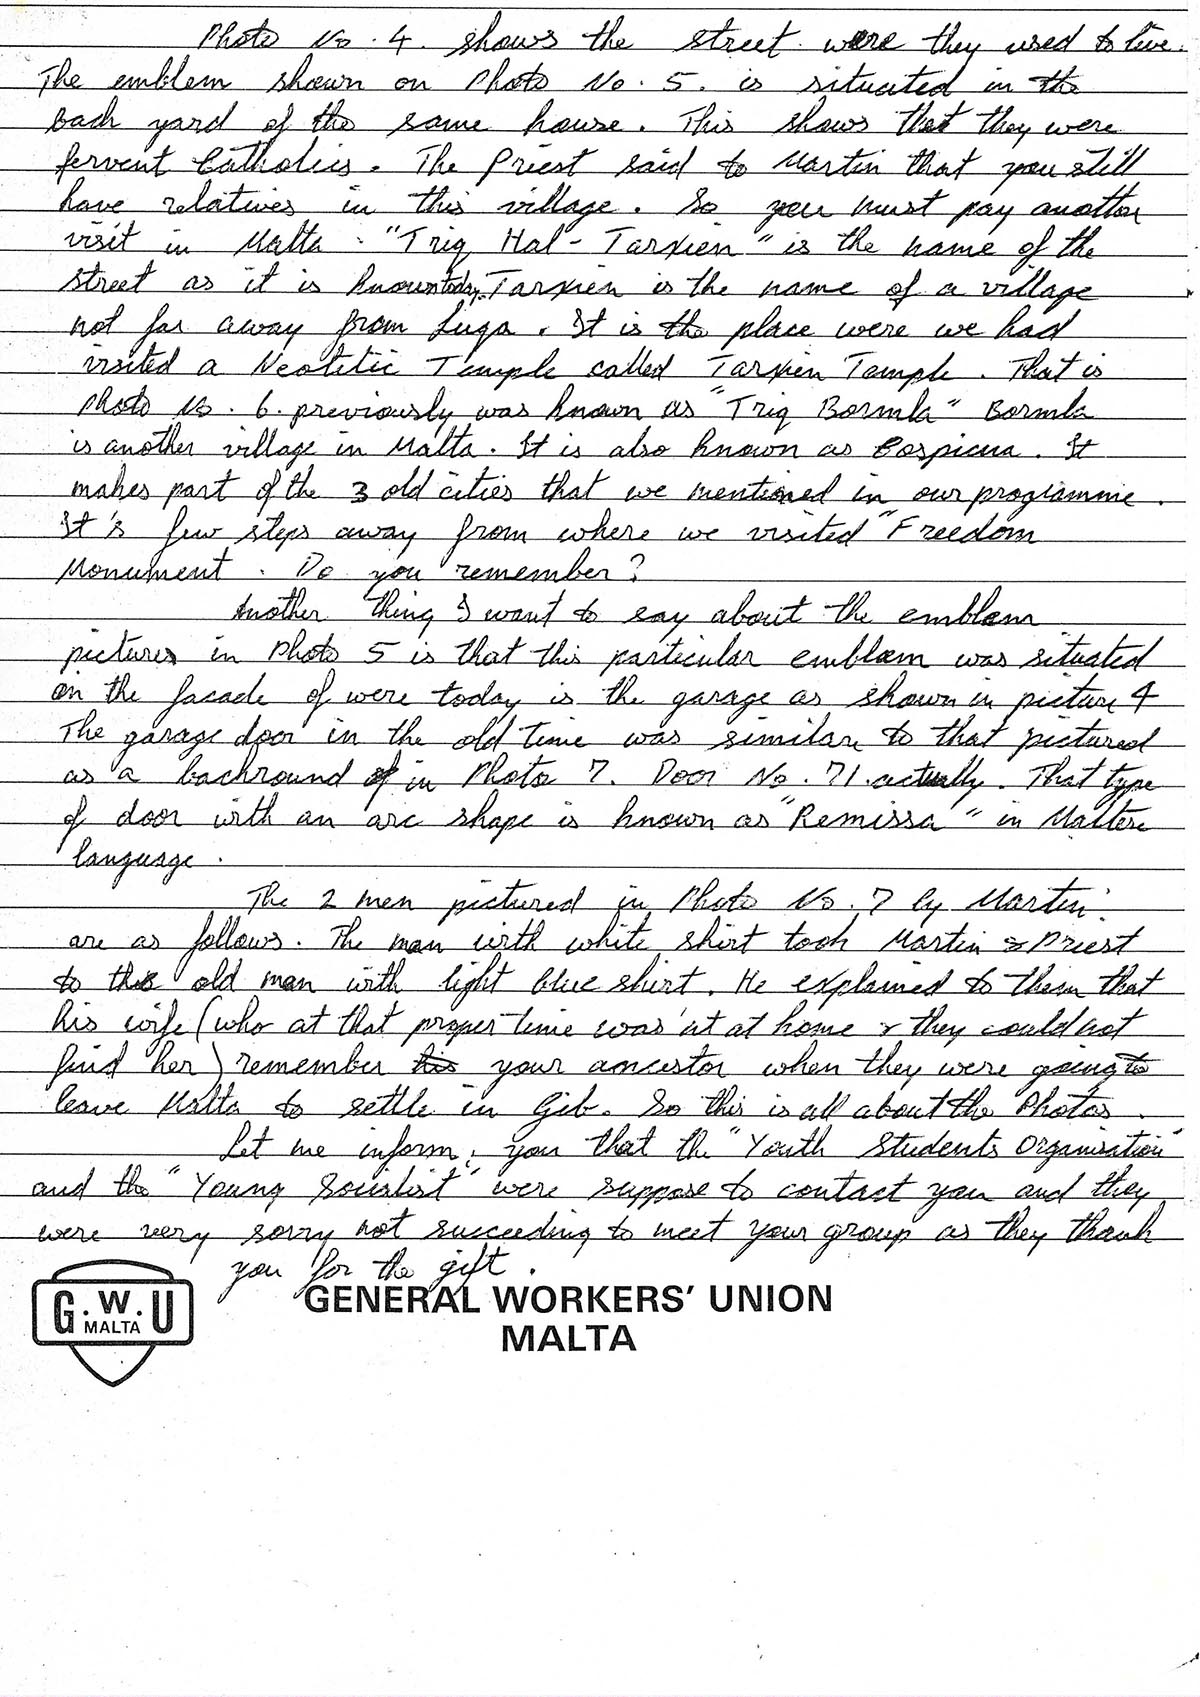 Photo No. 4. shows the street were they used to live.
The emblem shown on Photo No. 5. is situated in the
back yard of the same house. This shows that they were
fervent Catholics. The Priest said to Martin that you still
have relatives in this village. So you must pay another
visit in Malta. "Triq Hal-Tarxien" is the name of the
street as it is known today. Tarxien is the name of a village
not far away from Luqa. It is the place were we had
visited a Neolitic Temple called Tarxien Temple. That is
Photo No. 6. previously was known as "Triq Bormla" Bormla
is another village in Malta. It is also known as Cospicua. It
makes part of the 3 old cities that we mentioned in our programme.
It's few steps away from where we visited "Freedom
Monument. Do you remember?
Another thing I want to say about the emblem
pictures in Photo 5 is that this particular emblem was situated
on the facade of were today is the garage as shown in picture 4
The garage door in the old time was similar to that pictured
as a bachround in Photo 7. Door No. 71. actually. That type
of door with an arc shape is known as "Remissa" in Maltese
language.
The 2 men pictured in Photo No. 7 by Martin.
are as follows. The man with white shirt took Martin & Priest
to the old man with light blue shirt. He explained to them that
his wife (who at that proper time was'nt at home & they could not
find her) remember your ancestor when they were going to
leave Malta to settle in Gib. So this is all about the Photos.
Let me inform you that the "Youth Students Organisation"
and the "Young Socialist" were suppose to contact you and they
were very sorry not succeeding to meet your group as they thank
you for the gift.
G.W.U
MALTA
GENERAL WORKERS' UNION
MALTA